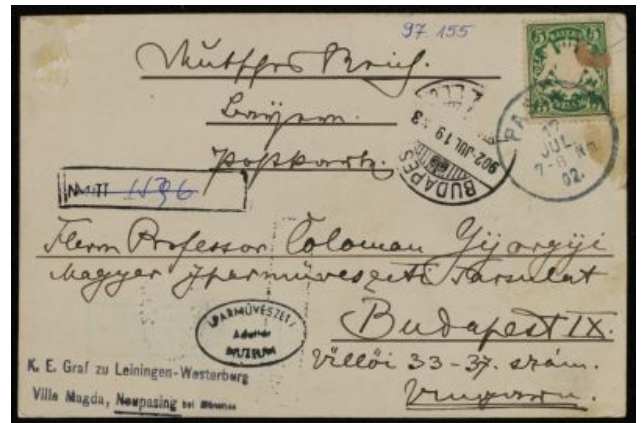 97.155
Deutsches Reich.
Bayern.
Postkarte.
5 BAYERN 5
BUDAPEST
902 JUL 19
PA
17
JUL
7-8 Nm
02.
1196
Herrn Professor Coloman Györgyi
Magyar Iparmüvészeti Tarsulat
Budapest IX.
Üllöi 33-37. szám.
Ungarn.
IPARMŰVÉSZETI
Adattár
MUZEUM
K. E. Graf zu Leiningen-Westerburg
Villa Magda, Neupasing bei München